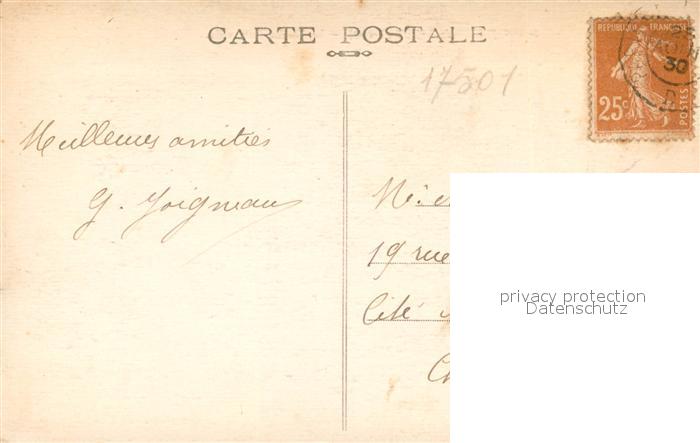 CARTE POSTALE
REPUBLIQUE FRANÇAISE
30
25c
POSTES
17501
Meilleures amitiés
G. Joigneau
19 rue
Cité
privacy protection
Datenschutz